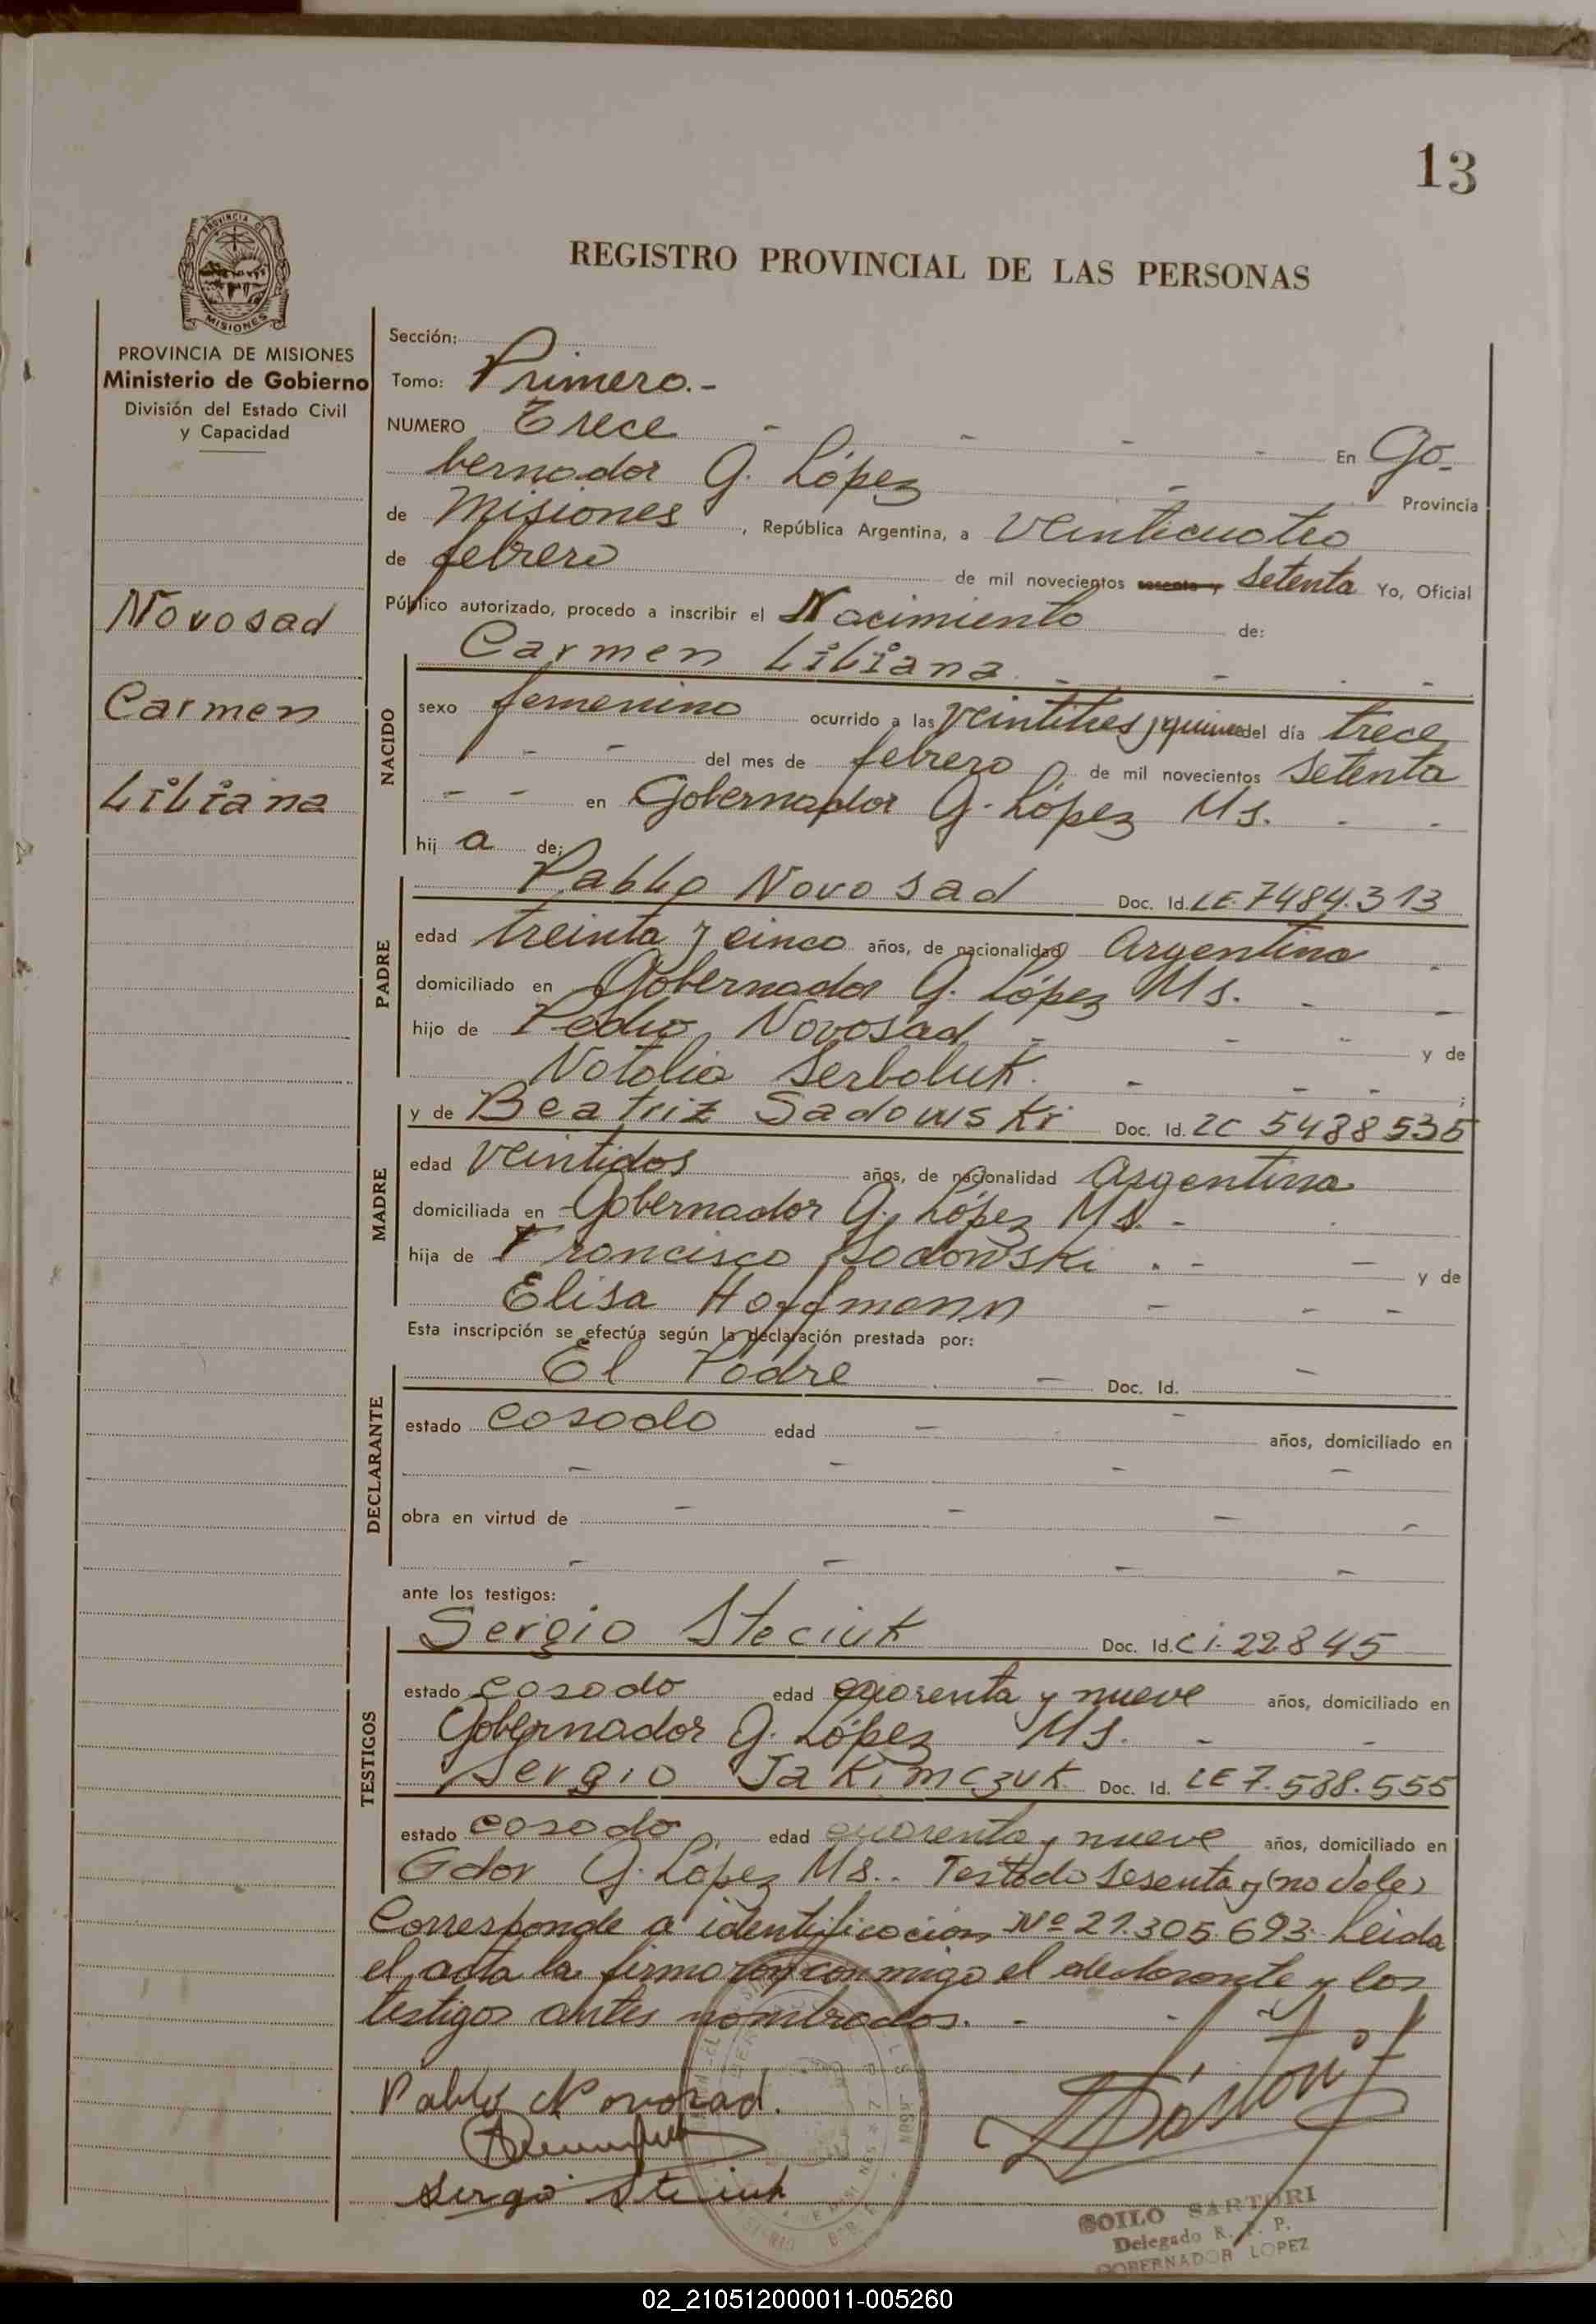 13
REGISTRO PROVINCIAL DE LAS PERSONAS
PROVINCIA DE MISIONES
Ministerio de Gobierno
División del Estado Civil
y Capacidad
Novosad
Carmen
Liliana
Sección:
Tomo: Primero.-
NUMERO Trece - - - - En Go-
bernador G. López - Provincia
de Misiones, República Argentina, a veinticuatro
de febrero de mil novecientos sesenta y setenta Yo, Oficial
Público autorizado, procedo a inscribir el Nacimiento de:
Carmen Liliana. - - - -
NACIDO
sexo femenino ocurrido a las veintitres y quince del día trece
- - del mes de febrero de mil novecientos setenta
- - en Gobernador G. López Ms. - -
hij a de:
PADRE
Pablo Novosad Doc. Id. LE. 7484.313
edad treinta y cinco años, de nacionalidad Argentina -
domiciliado en Gobernador G. López Ms. - -
hijo de Pedro Novosad - - - y de
Natalia Serbaluk. - - - ;
MADRE
y de Beatriz Sadowski Doc. Id. LC 5488535
edad veintidos años, de nacionalidad Argentina
domiciliada en Gobernador G. López Ms. -
hija de Francisco Sadowski - - y de
Elisa Hoffmann - - -
Esta inscripción se efectúa según la declaración prestada por:
DECLARANTE
El Padre - Doc. Id. -
estado casado edad - - años, domiciliado en
- - - -
obra en virtud de - - - -
- - - -
ante los testigos:
TESTIGOS
Sergio Steciuk Doc. Id. Ci. 22845
estado casado edad cuarenta y nueve años, domiciliado en
Gobernador G. López Ms. - -
Sergio Jakimczuk Doc. Id. LE 7.538.555
estado casado edad cuarenta y nueve años, domiciliado en
Gdor G. López Ms.. Testado sesenta y (no vale)
Corresponde a identificación Nº 21.305.693. Leida
el acta la firmaron conmigo el declarante y los
testigos antes nombrados. - -
Pablo Novosad.
Sergio Steciuk
SOILO SARTORI
Delegado R. P. P.
GOBERNADOR LOPEZ
02_210512000011-005260